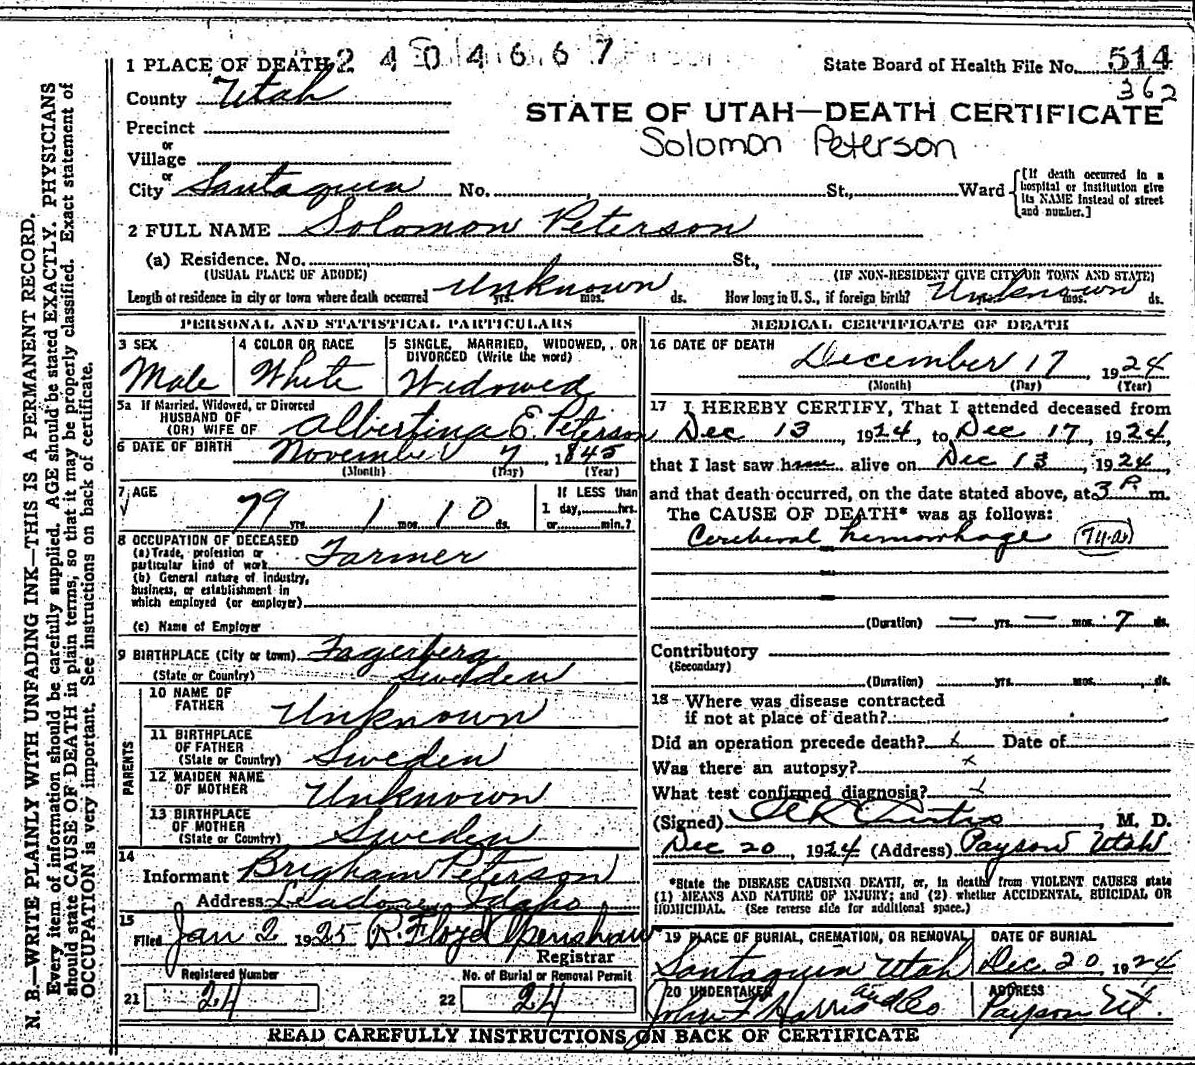 1 PLACE OF DEATH 2 4 0 4 6 6 7
State Board of Health File No. 514
362
County Utah
STATE OF UTAH—DEATH CERTIFICATE
Precinct
Solomon Peterson
or
Village
or
City Santaquin No. , St., Ward
[If death occurred in a hospital or institution give its NAME instead of street and number.]
2 FULL NAME Solomon Peterson
(a) Residence. No. St.,
(USUAL PLACE OF ABODE) (IF NON-RESIDENT GIVE CITY OR TOWN AND STATE)
Length of residence in city or town where death occurred Unknown yrs. mos. ds. How long in U. S., if foreign birth? Unknown yrs. mos. ds.
PERSONAL AND STATISTICAL PARTICULARS
3 SEX
Male
4 COLOR OR RACE
White
5 SINGLE, MARRIED, WIDOWED, OR DIVORCED (Write the word)
Widowed
5a If Married, Widowed, or Divorced
HUSBAND OF
(OR) WIFE OF Albertina E. Peterson
6 DATE OF BIRTH November 7, 1845
(Month) (Day) (Year)
7 AGE
79 yrs. 1 mos. 10 ds.
If LESS than
1 day, hrs.
or min.?
8 OCCUPATION OF DECEASED
(a) Trade, profession or
particular kind of work Farmer
(b) General nature of industry,
business, or establishment in
which employed (or employer)
(c) Name of Employer
9 BIRTHPLACE (City or town) Fagerberg
(State or Country) Sweden
PARENTS
10 NAME OF
FATHER Unknown
11 BIRTHPLACE
OF FATHER
(State or Country) Sweden
12 MAIDEN NAME
OF MOTHER Unknown
13 BIRTHPLACE
OF MOTHER
(State or Country) Sweden
14
Informant Brigham Peterson
Address Idaho
15
Filed Jan 2 1925 R. Floyd Openshaw
Registrar
Registered Number
21 24
No. of Burial or Removal Permit
22 24
MEDICAL CERTIFICATE OF DEATH
16 DATE OF DEATH
December 17 1924
(Month) (Day) (Year)
17 I HEREBY CERTIFY, That I attended deceased from
Dec 13, 1924, to Dec 17, 1924,
that I last saw him alive on Dec 13, 1924,
and that death occurred, on the date stated above, at 3 P. m.
The CAUSE OF DEATH* was as follows:
Cerebral hemorrhage
(Duration) — yrs. — mos. 7 ds.
Contributory
(Secondary)
(Duration) yrs. mos. ds.
18 Where was disease contracted
if not at place of death?
Did an operation precede death? x Date of
Was there an autopsy? x
What test confirmed diagnosis? x
(Signed) Curtis, M. D.
Dec 20, 1924 (Address) Payson Utah
*State the DISEASE CAUSING DEATH, or, in deaths from VIOLENT CAUSES state
(1) MEANS AND NATURE OF INJURY; and (2) whether ACCIDENTAL, SUICIDAL OR
HOMICIDAL. (See reverse side for additional space.)
19 PLACE OF BURIAL, CREMATION, OR REMOVAL
Santaquin Utah
DATE OF BURIAL
Dec. 20, 1924
20 UNDERTAKER
John F Harris and Co
ADDRESS
Payson Ut.
READ CAREFULLY INSTRUCTIONS ON BACK OF CERTIFICATE
N. B.—WRITE PLAINLY WITH UNFADING INK—THIS IS A PERMANENT RECORD.
Every item of information should be carefully supplied. AGE should be stated EXACTLY. PHYSICIANS
should state CAUSE OF DEATH in plain terms, so that it may be properly classified. Exact statement of
OCCUPATION is very important. See instructions on back of certificate.